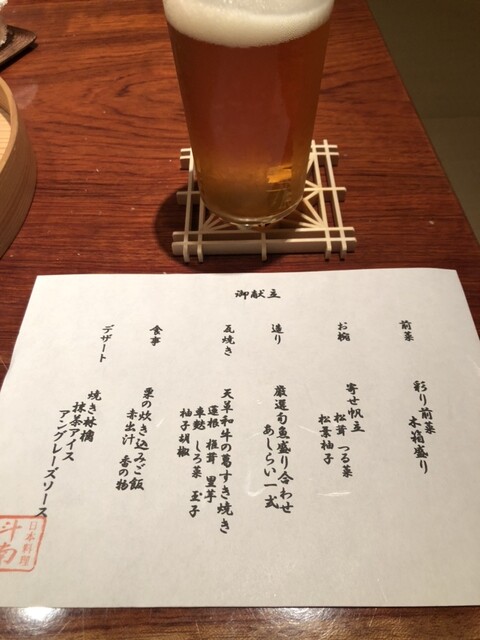 御献立
前菜
彩り前菜
木箱盛り
お椀
寄せ帆立
松茸 つる菜
松葉柚子
造り
厳選旬魚盛り合わせ
あしらい一式
瓦焼き
天草和牛の葛すき焼き
蓮根 椎茸 里芋
車麩 しろ菜 玉子
柚子胡椒
食事
栗の炊き込みご飯
赤出汁 香の物
デザート
焼き林檎
抹茶アイス
アングレーズソース
日本料理
斗南